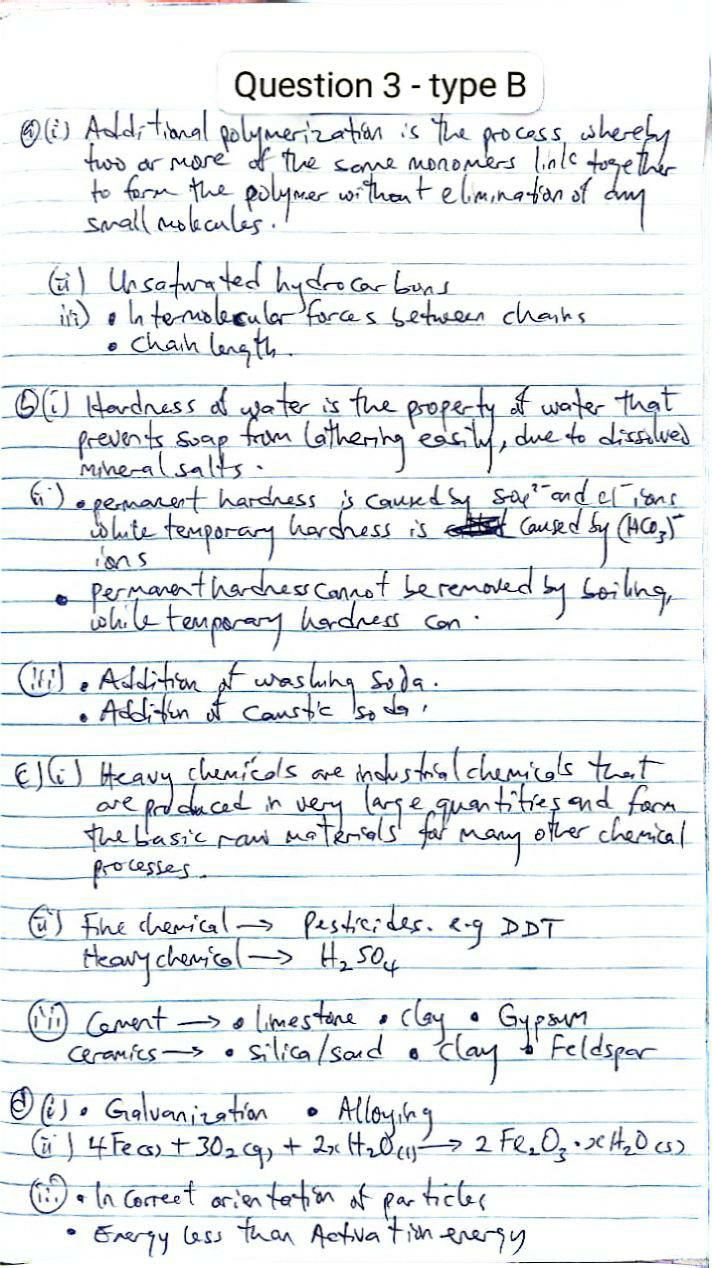 Question 3 - type B
(a)(i) Additional polymerization is the process whereby
two or more of the same monomers link together
to form the polymer without elimination of any
small molecules.
(ii) Unsaturated hydrocarbons
iii) • Intermolecular forces between chains
• Chain length.
(b)(i) Hardness of water is the property of water that
prevents soap from lathering easily, due to dissolved
mineral salts.
(ii) • permanent hardness is caused by SO₄²⁻ and Cl⁻ ions
while temporary hardness is caused by (HCO₃)⁻
ions
• permanent hardness cannot be removed by boiling,
while temporary hardness can.
(iii) • Addition of washing soda.
• Addition of caustic soda.
C)(i) Heavy chemicals are industrial chemicals that
are produced in very large quantities and form
the basic raw materials for many other chemical
processes.
(ii) Fine chemical → Pesticides. e.g DDT
Heavy chemical → H₂SO₄
(iii) Cement → • limestone • clay • Gypsum
Ceramics → • silica/sand • clay • Feldspar
(d)(i) • Galvanization • Alloying
(ii) 4Fe(s) + 3O₂(g) + 2xH₂O(l) → 2Fe₂O₃·xH₂O(s)
(iii) • Incorrect orientation of particles
• Energy less than Activation energy